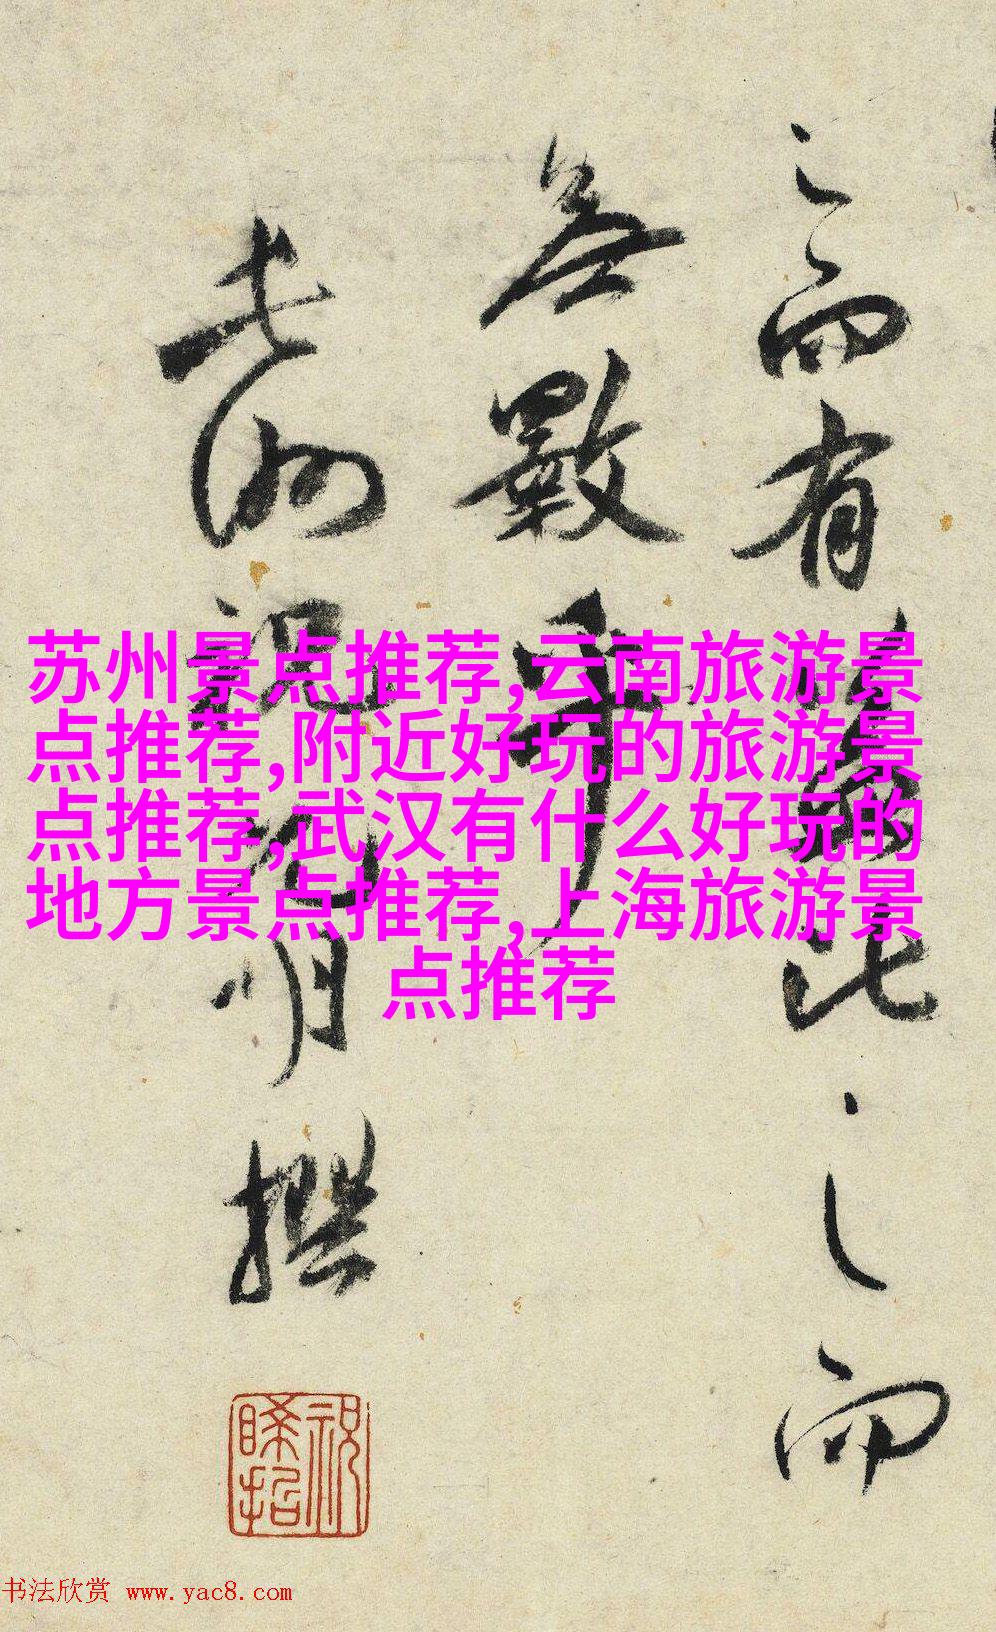 之而有比之而
無斁乎
長洲祝允明撰
祝
睎哲
苏州景点推荐,云南旅游景
点推荐,附近好玩的旅游景
点推荐,武汉有什么好玩的
地方景点推荐,上海旅游景
点推荐
书法欣赏 www.yac8.com